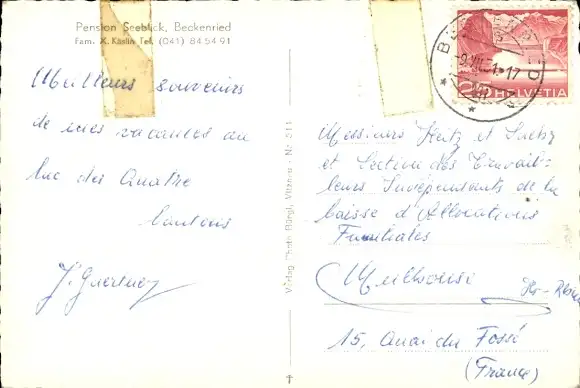 Pension Seeblick, Beckenried
Fam. X. Käslin Tel. (041) 84 54 91
Meilleurs souvenirs
de mes vacances au
lac des Quatre
Cantons
Verlag Photo Bürgi, Vitznau - No 511
HELVETIA
Messieurs et
et Section des Travail-
leurs Indépendants de la
Caisse d'Allocations
Familiales
Mulhouse
Ht-Rhin
15, Quai du Fossé
(France)